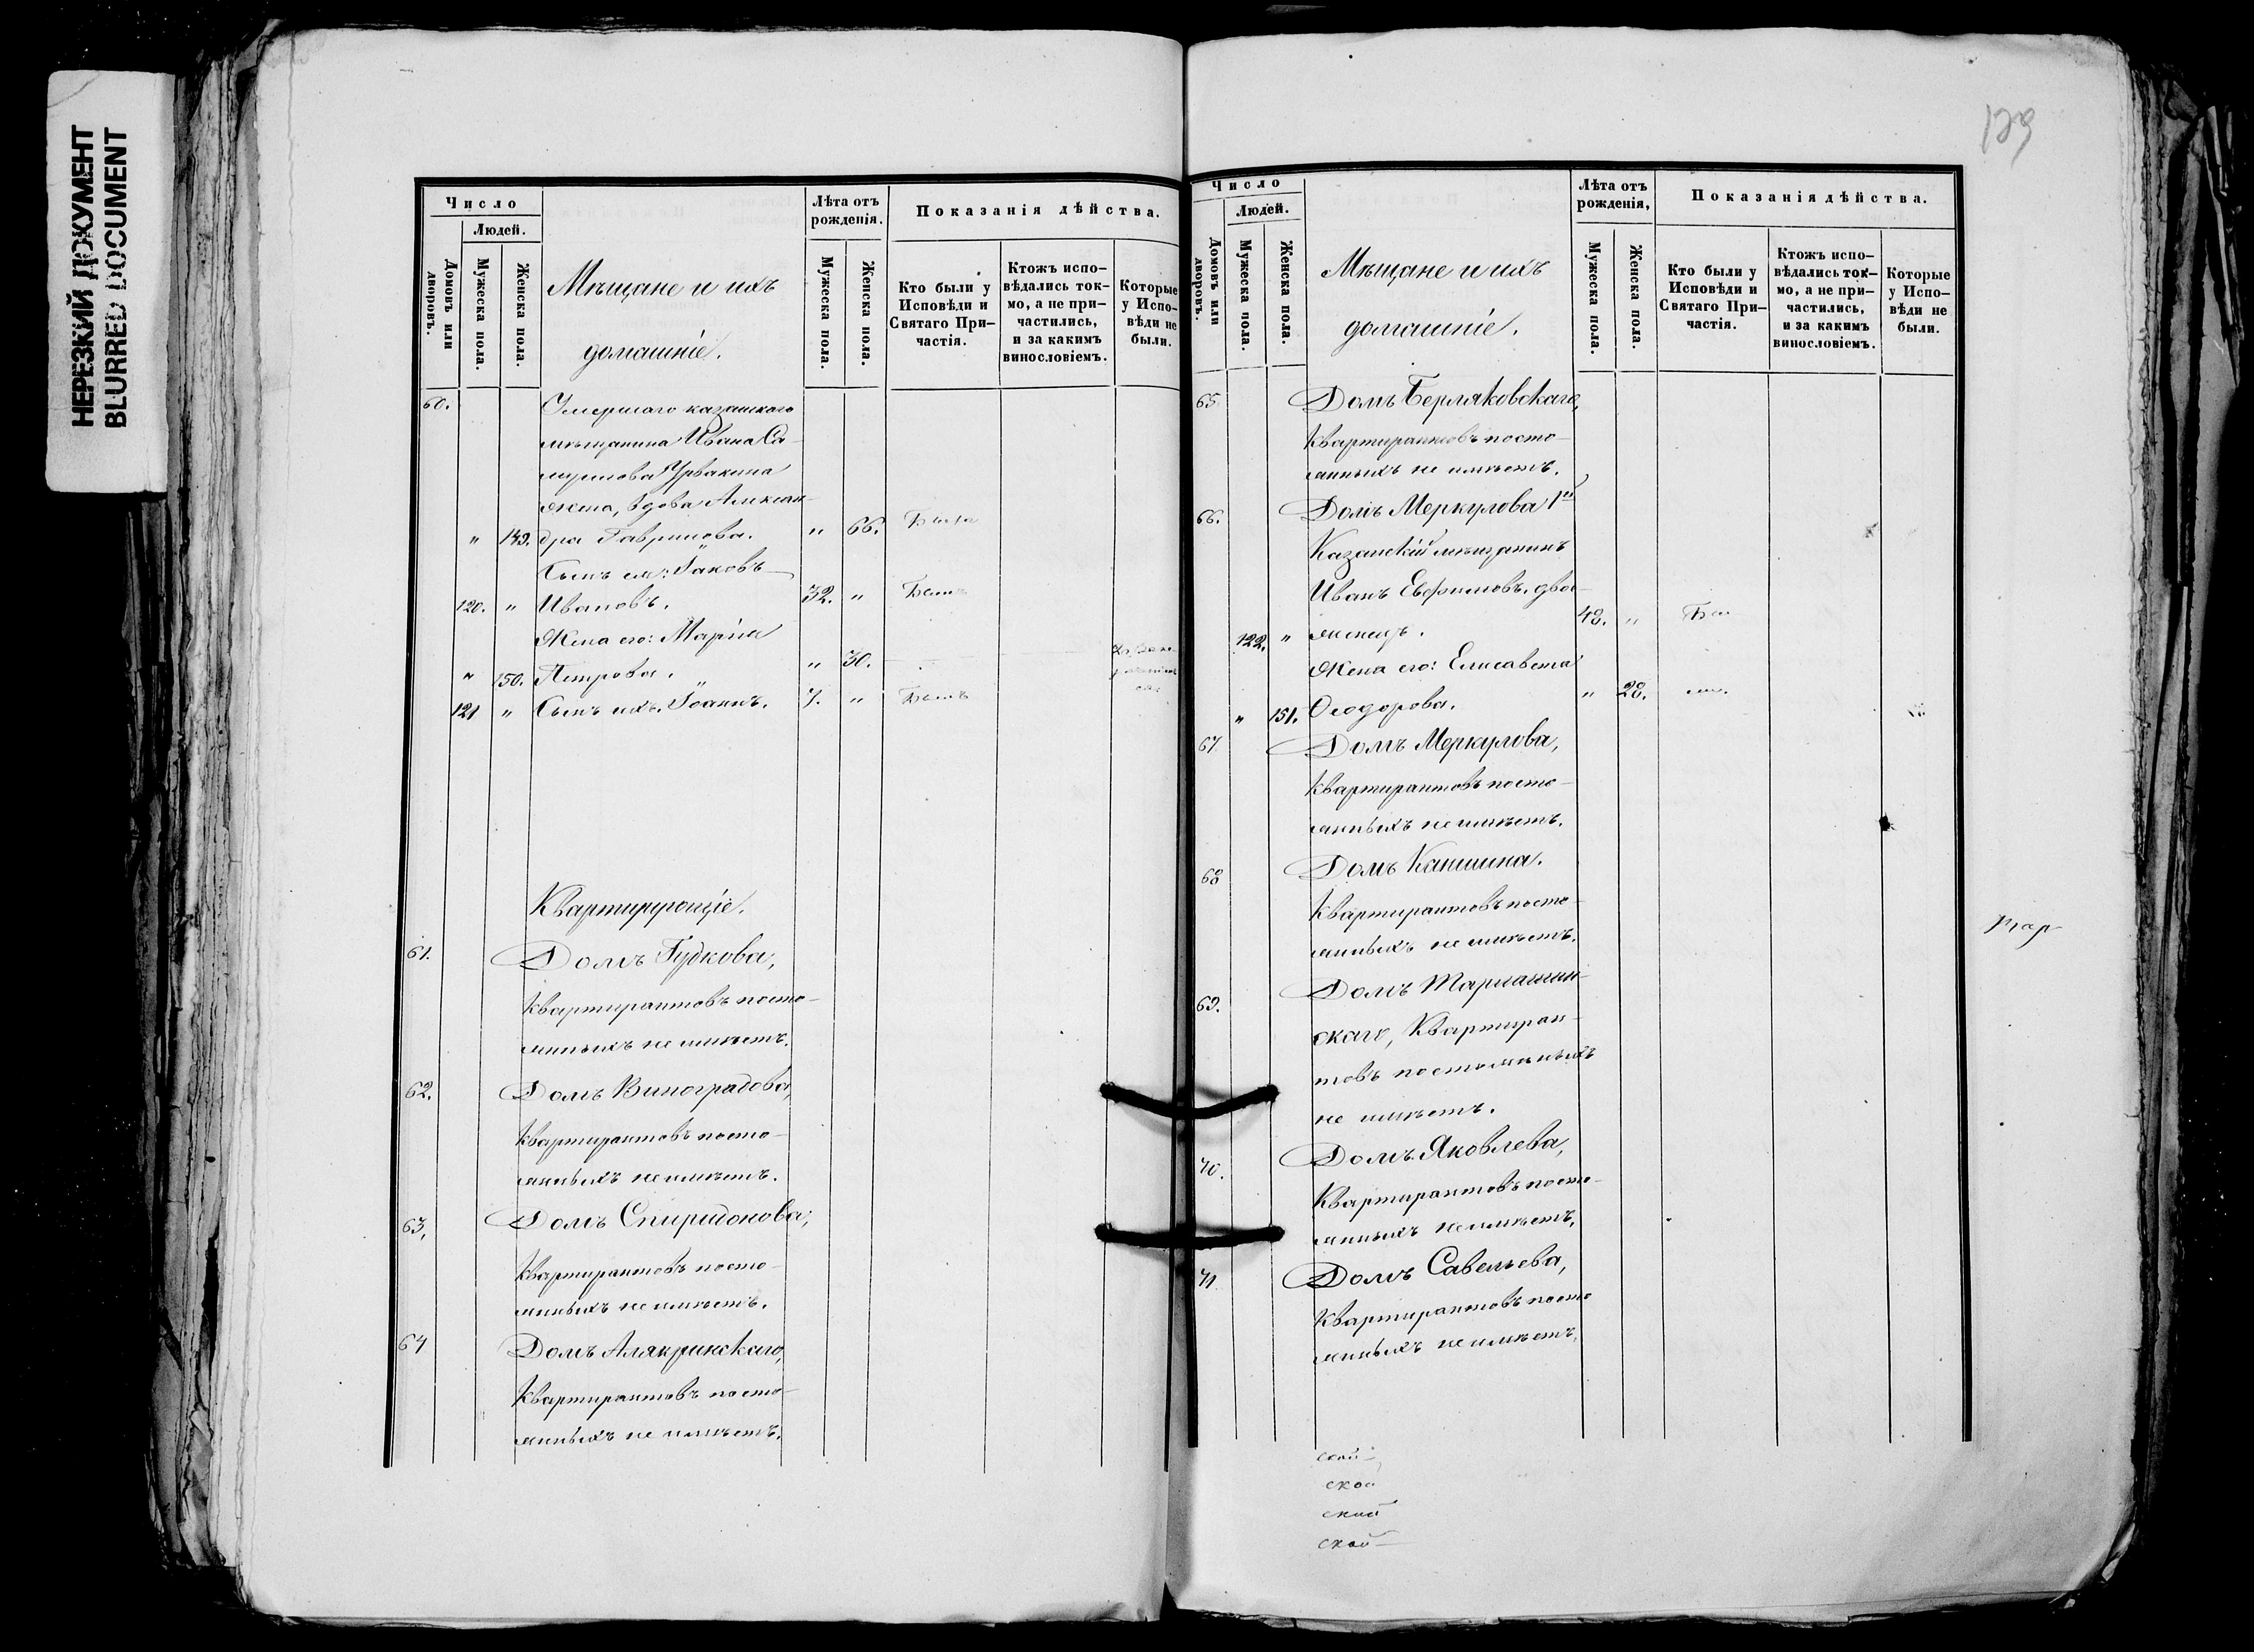 НЕРЕЗКИЙ ДОКУМЕНТ
BLURRED DOCUMENT
Число
Людей.
Домовъ или дворовъ.
Мужеска пола.
Женска пола.
Мѣщане и ихъ
домашніе.
Лѣта отъ
рожденія.
Мужеска пола.
Женска пола.
Показанія дѣйства.
Кто были у
Исповѣди и
Святаго При-
частія.
Ктожъ испо-
вѣдались ток-
мо, а не при-
частились,
и за какимъ
винословіемъ.
Которые
у Испо-
вѣди не
были.
60. Умершаго казанскаго
мѣщанина Ивана Са-
мушлова Урвакина
жена, вдова Алексан-
" 149. дра Гаврилова. " 66. Была
Сынъ ея: Іаковъ
120. " Ивановъ. 32. " Былъ
Жена его: Марія
" 150. Петрова. " 30.
121 " Сынъ ихъ. Іоаннъ. 7. " Былъ
Квартирующіе.
61. Домъ Губкова,
квартирантовъ посто-
янныхъ не имѣетъ.
62. Домъ Виноградова,
квартирантовъ посто-
янныхъ не имѣетъ.
63, Домъ Спиридонова;
квартирантовъ посто-
янныхъ не имѣетъ.
64 Домъ Алякринскаго,
квартирантовъ посто-
янныхъ не имѣетъ.
129
Число
Людей.
Домовъ или дворовъ.
Мужеска пола.
Женска пола.
Мѣщане и ихъ
домашніе.
Лѣта отъ
рожденія,
Мужеска пола.
Женска пола.
Показанія дѣйства.
Кто были у
Исповѣди и
Святаго При-
частія.
Ктожъ испо-
вѣдались ток-
мо, а не при-
частились,
и за какимъ
винословіемъ.
Которые
у Испо-
вѣди не
были.
65 Домъ Берляковскаго,
квартирантовъ посто-
янныхъ не имѣетъ.
66. Домъ Меркулова 1й
Казанскій мѣщанинъ
Иванъ Евфимовъ. двое-
122. " женецъ. 48. "
Жена его: Елисавета
" 151. Ѳеодорова. " 28.
67 Домъ Меркулова,
квартирантовъ посто-
янныхъ не имѣетъ.
68 Домъ Каншина.
квартирантовъ посто-
янныхъ не имѣетъ.
69. Домъ Тармашин-
скаго, квартиран-
товъ постоянныхъ
не имѣетъ.
70. Домъ Яковлева,
квартирантовъ посто-
янныхъ не имѣетъ,
71 Домъ Савельева,
квартирантовъ посто
янныхъ не имѣетъ.
ской
ской
ской
ской